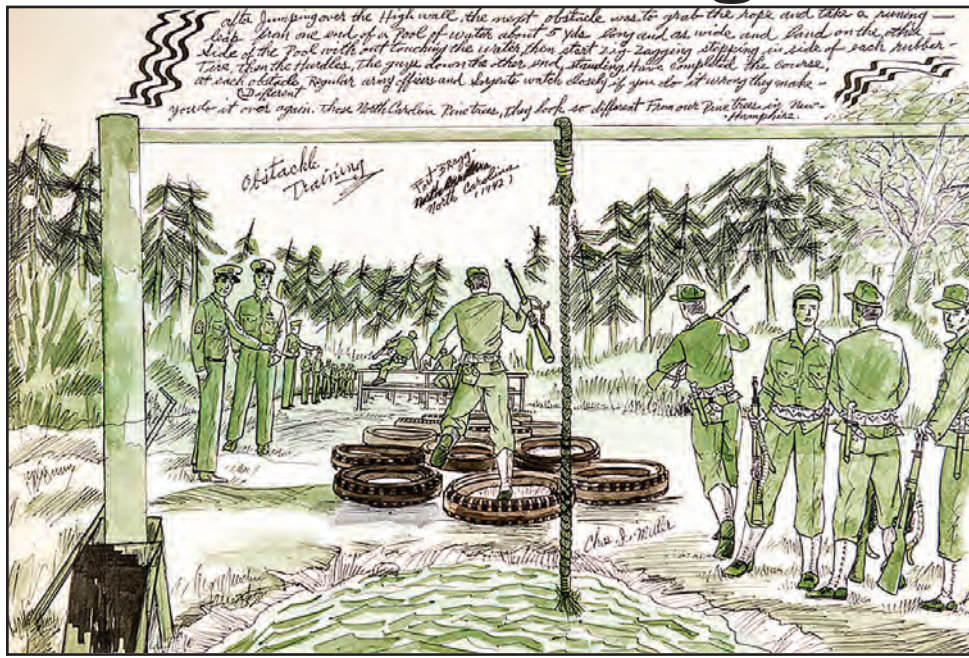 after Jumping over the High wall, the next obstacle was to grab the rope and take a runing —
leap from one end of a Pool of water about 5 yds long and as wide and land on the other —
Side of the Pool with out touching the water then start zig-Zagging stepping in side of each rubber-
Tire, then the Hurdles. The guys down the other end, standing, Have completed the course,
at each obstacle, Regular army officers and Sargents watch closely if you do it wrong they make -
Different
you do it over again. These North Carolina Pine trees, they look so different From our Pine trees in New-
Hampshire.
Obstackle
Training
Fort BRagg-
North Carolina
(1942)
Chas. J. Miller